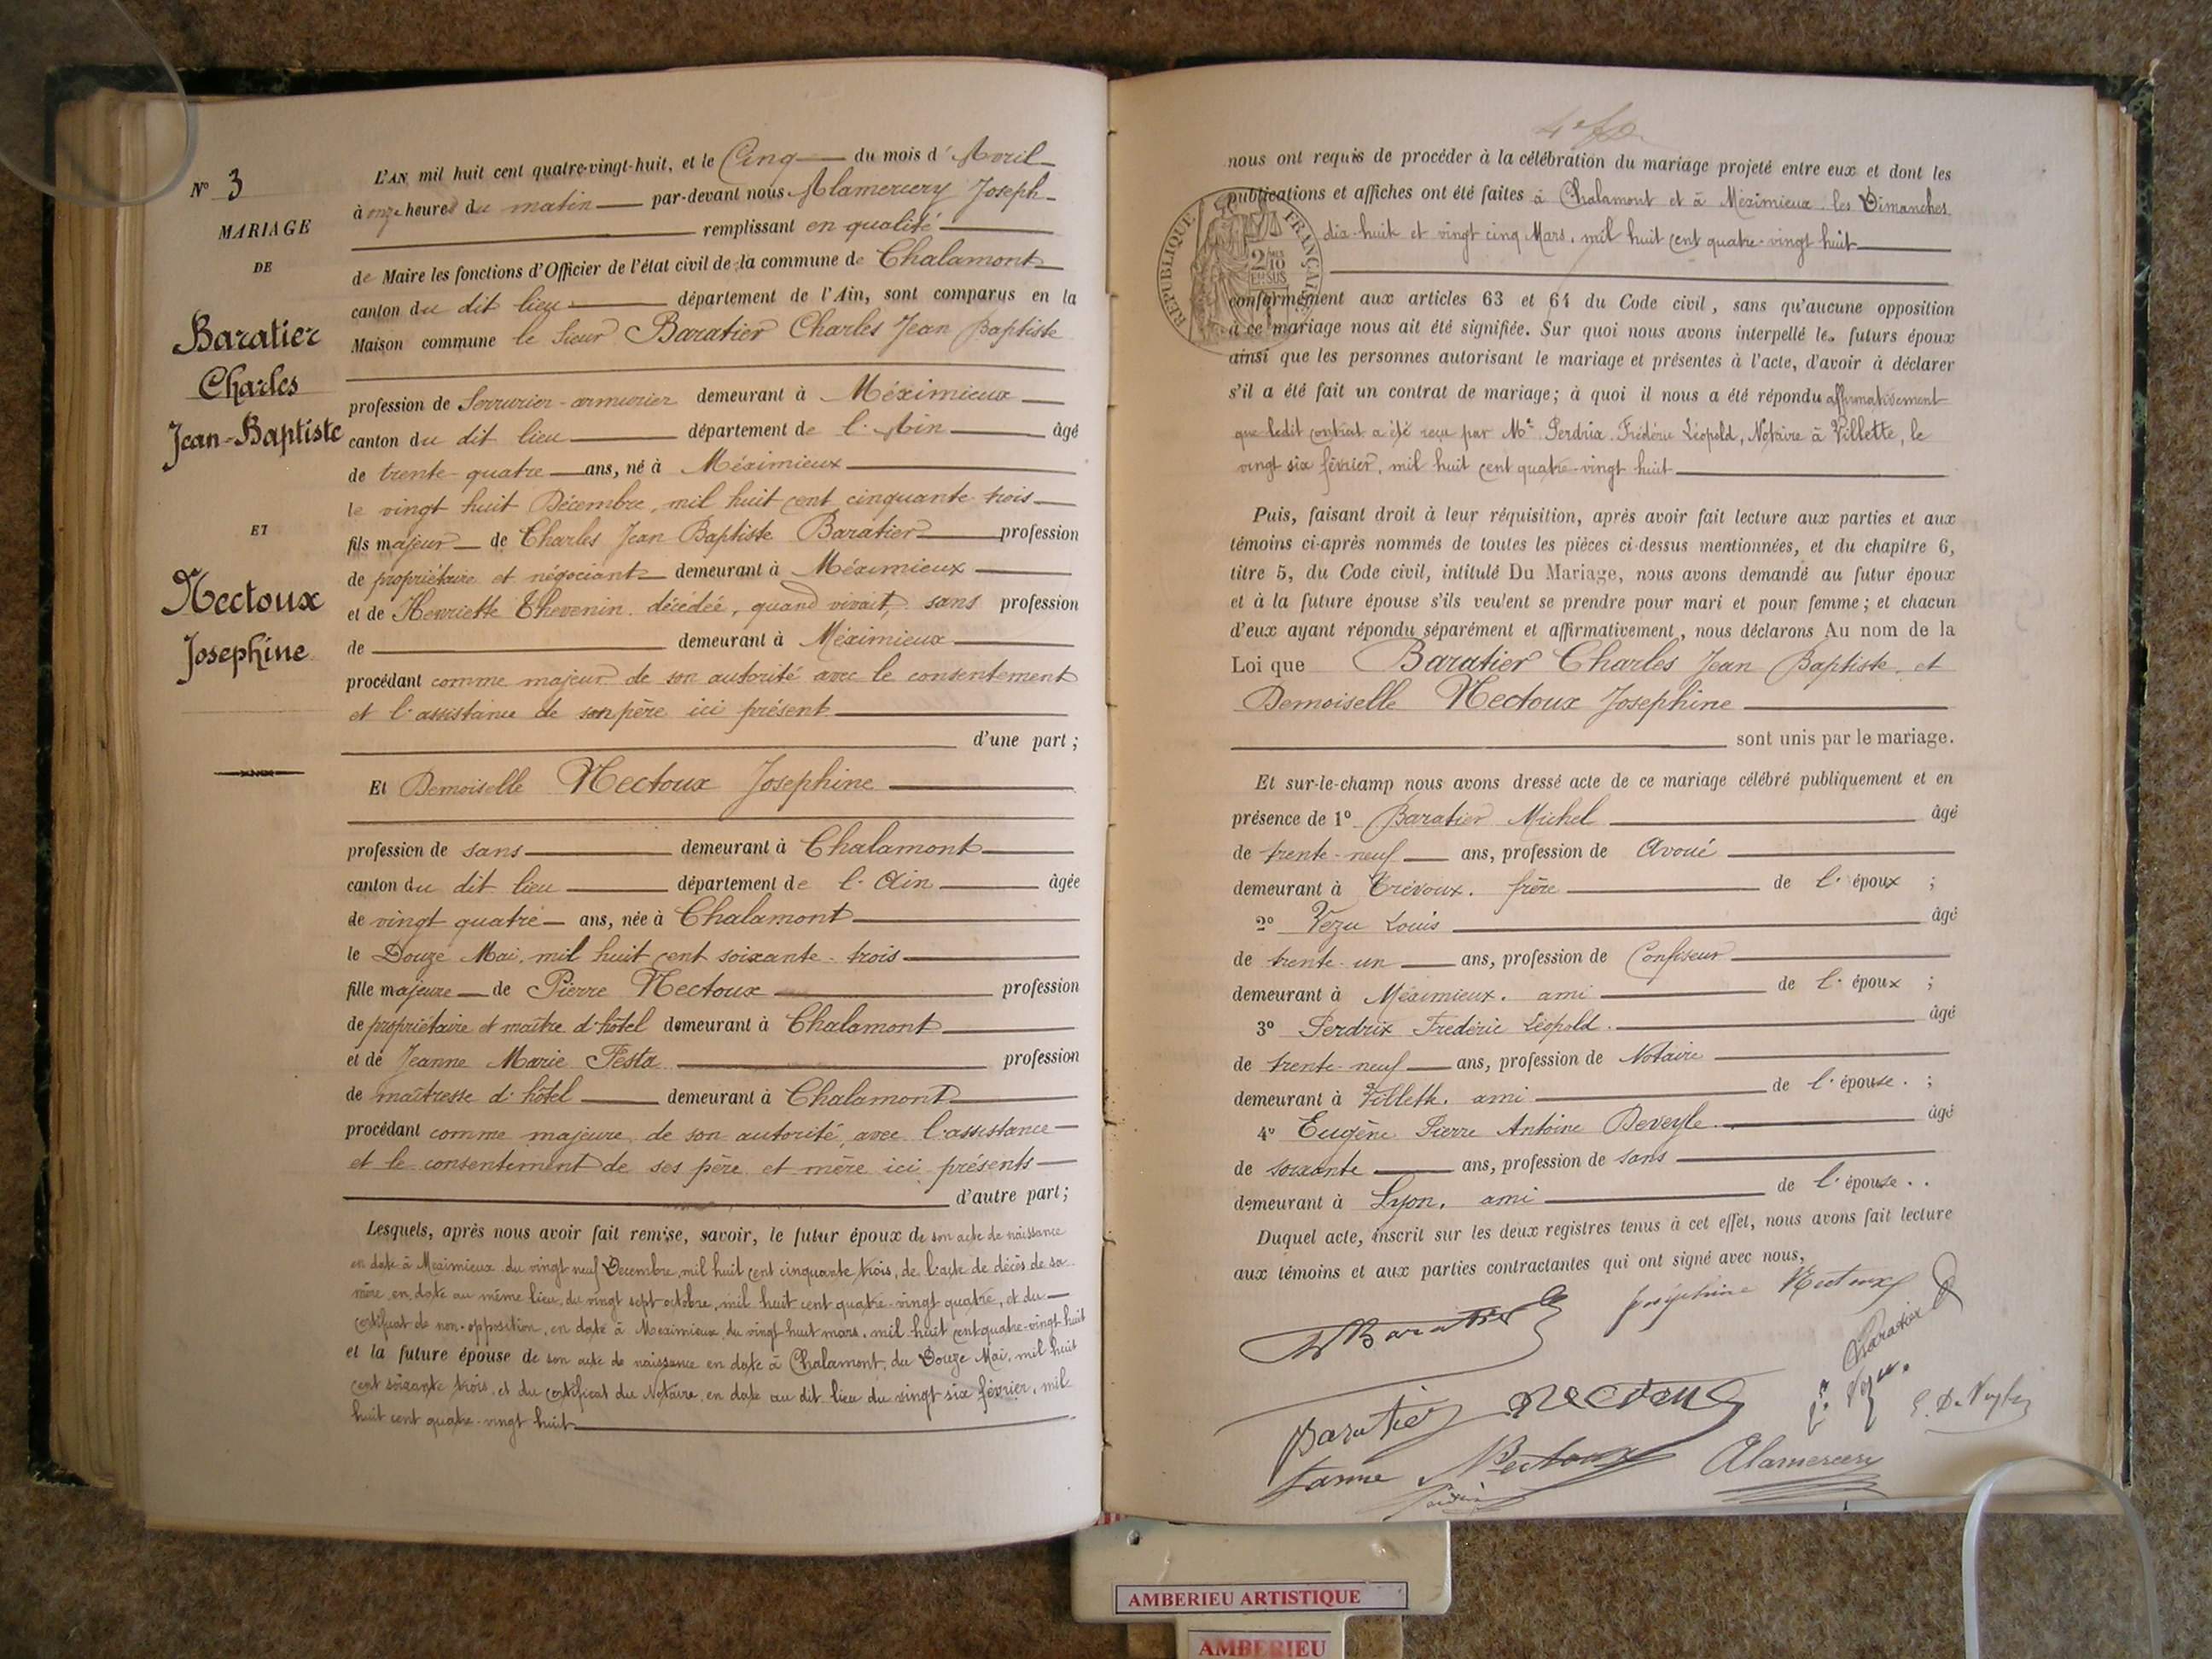 N° 3
MARIAGE
DE
Baratier
Charles
Jean-Baptiste
ET
Nectoux
Josephine
L'AN mil huit cent quatre-vingt-huit, et le Cinq du mois d'Avril
à onze heures du matin par-devant nous Alamercery Joseph
remplissant en qualité
de Maire les fonctions d'Officier de l'état civil de la commune de Chalamont
canton du dit lieu département de l'Ain, sont comparus en la
Maison commune le Sieur Baratier Charles Jean Baptiste
profession de Serrurier-armurier demeurant à Méximieux
canton du dit lieu département de l'Ain âgé
de trente-quatre ans, né à Méximieux
le vingt huit Décembre, mil huit cent cinquante-trois
fils majeur de Charles Jean Baptiste Baratier profession
de propriétaire et négociant demeurant à Méximieux
et de Henriette Thevenin décédée, quand vivait, sans profession
de demeurant à Méximieux
procédant comme majeur de son autorité avec le consentement
et l'assistance de son père ici présent
d'une part ;
Et Demoiselle Nectoux Josephine
profession de sans demeurant à Chalamont
canton du dit lieu département de l'Ain âgée
de vingt quatre ans, née à Chalamont
le Douze Mai, mil huit cent soixante-trois
fille majeure de Pierre Nectoux profession
de propriétaire et maître d'hôtel demeurant à Chalamont
et de Jeanne Marie Festa profession
de maîtresse d'hôtel demeurant à Chalamont
procédant comme majeure de son autorité avec l'assistance
et le consentement de ses père et mère ici présents
d'autre part ;
Lesquels, après nous avoir fait remise, savoir, le futur époux de son acte de naissance
en date à Meximieux du vingt neuf Décembre, mil huit cent cinquante trois, de l'acte de décès de sa
mère en date au même lieu, du vingt sept octobre, mil huit cent quatre-vingt quatre, et du
certificat de non-opposition, en date à Meximieux du vingt huit mars, mil huit cent quatre-vingt huit
et la future épouse de son acte de naissance en date à Chalamont, du Douze Mai, mil huit
cent soixante trois, et du certificat du Notaire, en date au dit lieu du vingt six février, mil
huit cent quatre-vingt huit
nous ont requis de procéder à la célébration du mariage projeté entre eux et dont les
publications et affiches ont été faites à Chalamont et à Meximieux les Dimanches
dix-huit et vingt cinq Mars, mil huit cent quatre-vingt huit
RÉPUBLIQUE FRANÇAISE
2/10 EN SUS
conformément aux articles 63 et 64 du Code civil, sans qu'aucune opposition
à ce mariage nous ait été signifiée. Sur quoi nous avons interpellé les futurs époux
ainsi que les personnes autorisant le mariage et présentes à l'acte, d'avoir à déclarer
s'il a été fait un contrat de mariage ; à quoi il nous a été répondu affirmativement
que ledit contrat a été reçu par Me Perdrix Frédéric Léopold, Notaire à Villette, le
vingt six février, mil huit cent quatre-vingt huit
Puis, faisant droit à leur réquisition, après avoir fait lecture aux parties et aux
témoins ci-après nommés de toutes les pièces ci-dessus mentionnées, et du chapitre 6,
titre 5, du Code civil, intitulé Du Mariage, nous avons demandé au futur époux
et à la future épouse s'ils veulent se prendre pour mari et pour femme ; et chacun
d'eux ayant répondu séparément et affirmativement, nous déclarons Au nom de la
Loi que Baratier Charles Jean Baptiste et
Demoiselle Nectoux Josephine
sont unis par le mariage.
Et sur-le-champ nous avons dressé acte de ce mariage célébré publiquement et en
présence de 1° Baratier Michel âgé
de trente-neuf ans, profession de Avoué
demeurant à Trévoux. frère de l'époux ;
2° Vezu Louis âgé
de trente-un ans, profession de Confiseur
demeurant à Méximieux. ami de l'époux ;
3° Perdrix Frédéric Léopold. âgé
de trente-neuf ans, profession de Notaire
demeurant à Villette. ami de l'épouse. ;
4° Eugène Pierre Antoine Deveyle âgé
de soixante ans, profession de sans
demeurant à Lyon. ami de l'épouse. .
Duquel acte, inscrit sur les deux registres tenus à cet effet, nous avons fait lecture
aux témoins et aux parties contractantes qui ont signé avec nous,
Baratier Joséphine Nectoux
Baratier
Baratier Nectoux Vezu
Nectoux Alamercery
AMBERIEU ARTISTIQUE
AMBERIEU